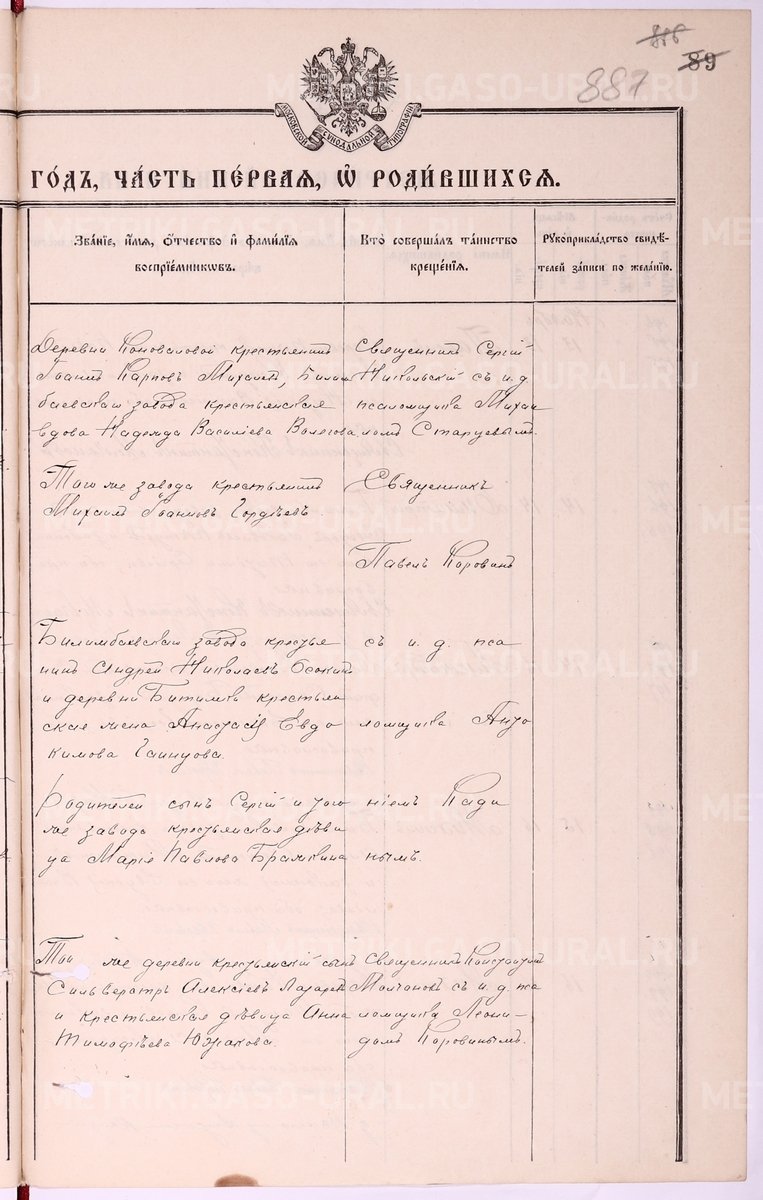 886
89
887
МОСКОВСКОЙ СѴНОДАЛЬНОЙ ТИПОГРАФІИ
ГО́ДЪ, ЧА́СТЬ ПЕ́РВАЯ, Ѡ҆ РОДИ́ВШИХСЯ.
Зва́нїе, и҆́мя, ѻ҆́тчество и҆ фами́лїя
воспрїе́мникѡвъ.
Кто̀ соверша́лъ та́инство
креще́нїя.
Рꙋкоприкла́дство свидѣ́-
телей за́писи по жела́нїю.
Деревни Коноваловой крестьянинъ
Іоаннъ Карповъ Михалевъ, Билим
баевскаго завода крестьянская
вдова Надежда Василіева Волегова
Священникъ Сергій
Никольский съ и. д.
псаломщика Михаи
ломъ Старцевымъ.
Того же завода крестьянинъ
Михаилъ Іоанновъ Гордѣевъ
Священникъ
Павелъ Коровинъ
Билимбаевскаго завода крестья
нинъ Андрей Николаевъ
и деревни Битимки крестьян
ская жена Анастасія Евдо
кимова Галицова.
съ и. д. пса
ломщика Анто
Родителей сынъ Сергій и того
же завода крестьянская дѣви
ца Марія Павлова
ніемъ
нымъ.
Той же деревни крестьянскій сынъ
Сильверстръ Алексіевъ
и крестьянская дѣвица Анна
Тимофѣева Южакова.
Священникъ Константинъ
съ и. д. пса
ломщика Леони-
домъ Коровинымъ.
METRIKI.GASO-URAL.RU